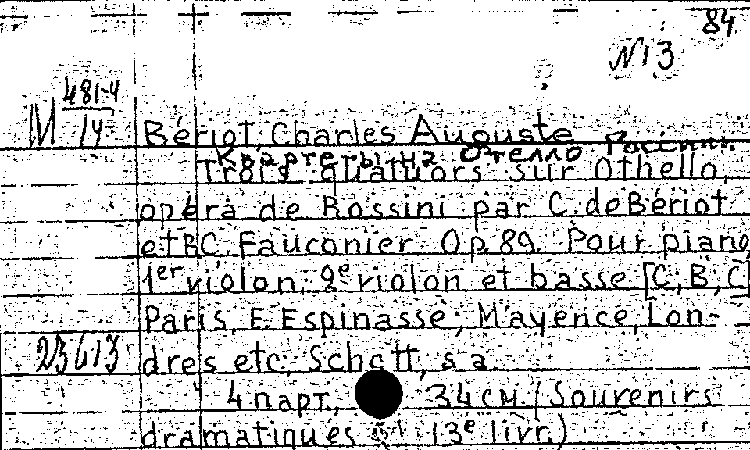 84
N 13
M 481-4/14
Bériot Charles Auguste
Квартеты на Отелло Россини.
Trois quatuors sur Othello,
opéra de Rossini par C. de Bériot
et B.C. Fauconier. Op. 89. Pour piano
1er violon, 2e violon et basse [C, B, C]
Paris, E. Espinasse; Mayence, Lon-
23613 dres etc, Schott, s.a.
4 парт., 34 см. (Souvenirs
dramatiques 13e livr.)